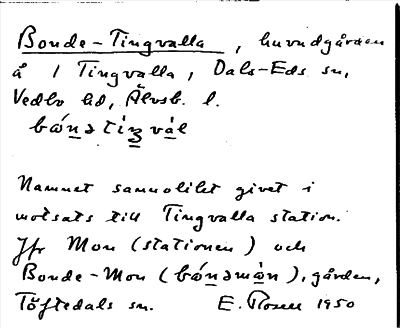 Bonde-Tingvalla, huvudgården
å 1 Tingvalla, Dals-Eds sn,
Vedbo hd, Älvsb. l.
bónə tíŋ vàl
Namnet sannolikt givet i
motsats till Tingvalla station.
Jfr Mon (stationen) och
Bonde-Mon (bónəmòn), gården,
Töftedals sn. E. Rosell 1950